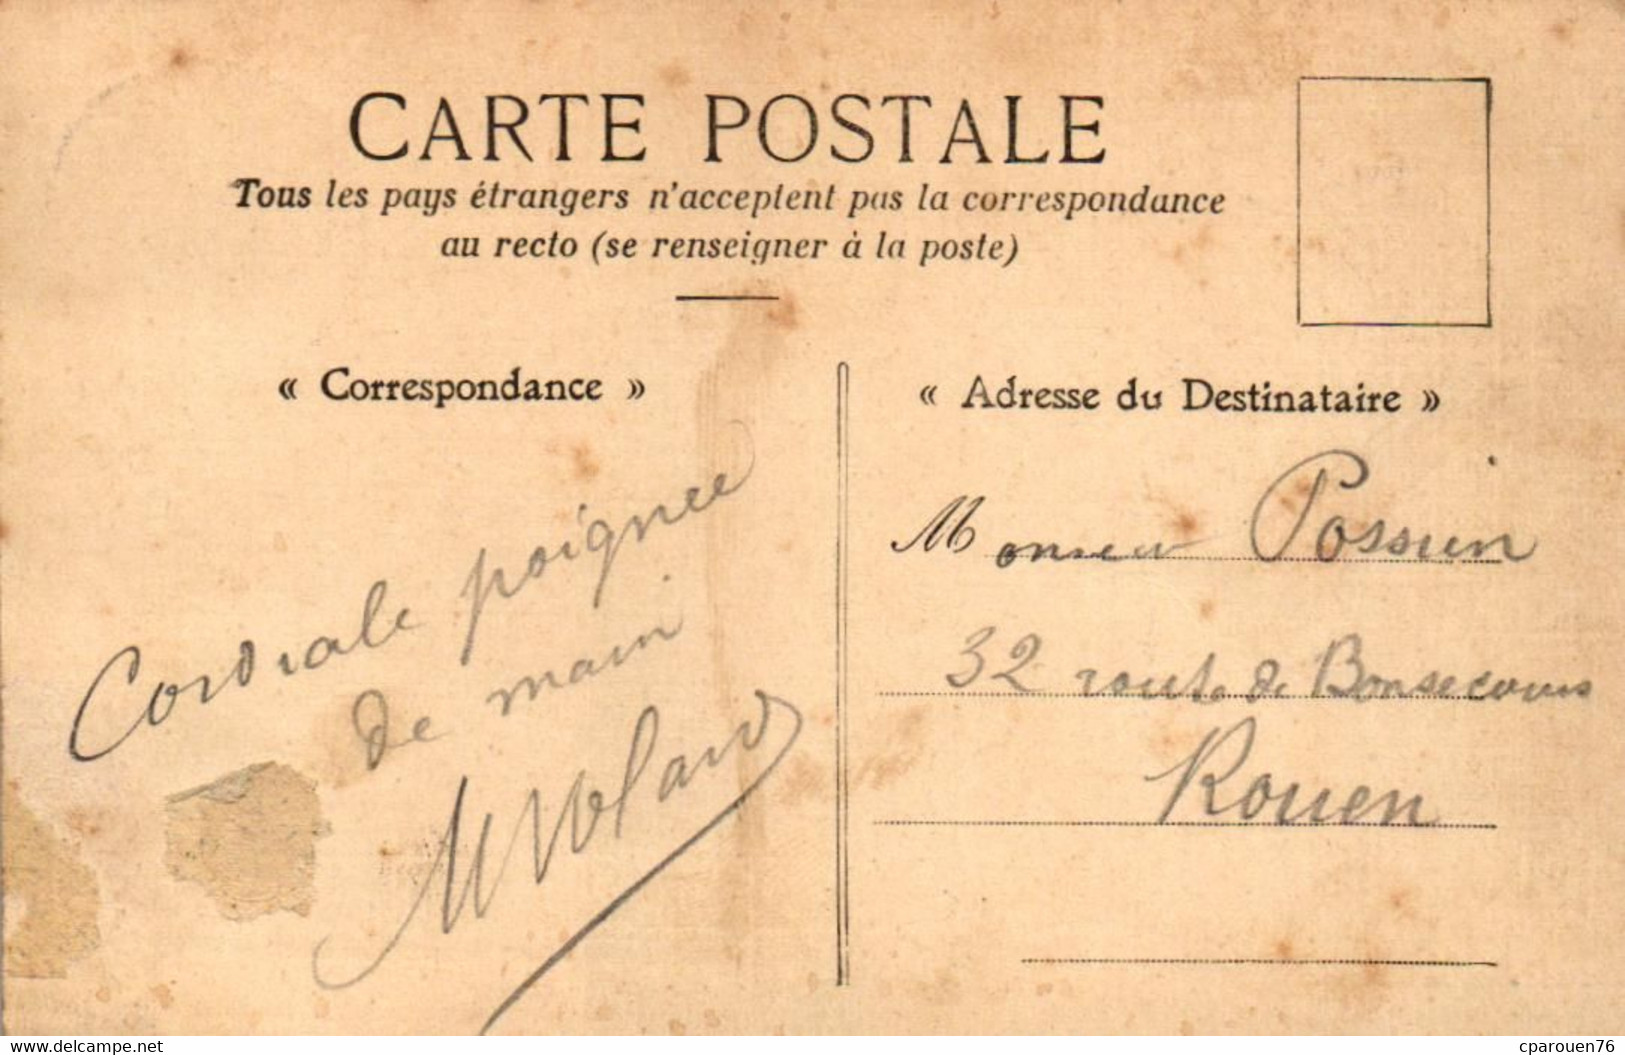 CARTE POSTALE
Tous les pays étrangers n'acceptent pas la correspondance
au recto (se renseigner à la poste)
« Correspondance »
Cordiale poignée
de main
« Adresse du Destinataire »
Monsieur Possien
32 route de Bonsecours
Rouen
www.delcampe.net
cparouen76